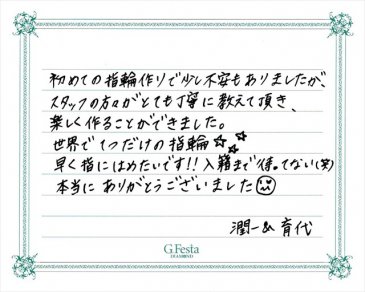 初めての指輪作りで少し不安もありましたが、
スタッフの方々がとても丁寧に教えて頂き、
楽しく作ることができました。
世界で1つだけの指輪☆☆
早く指にはめたいです!!入籍まで待てない(笑)
本当にありがとうございました
潤一&育代
G.Festa
DIAMOND